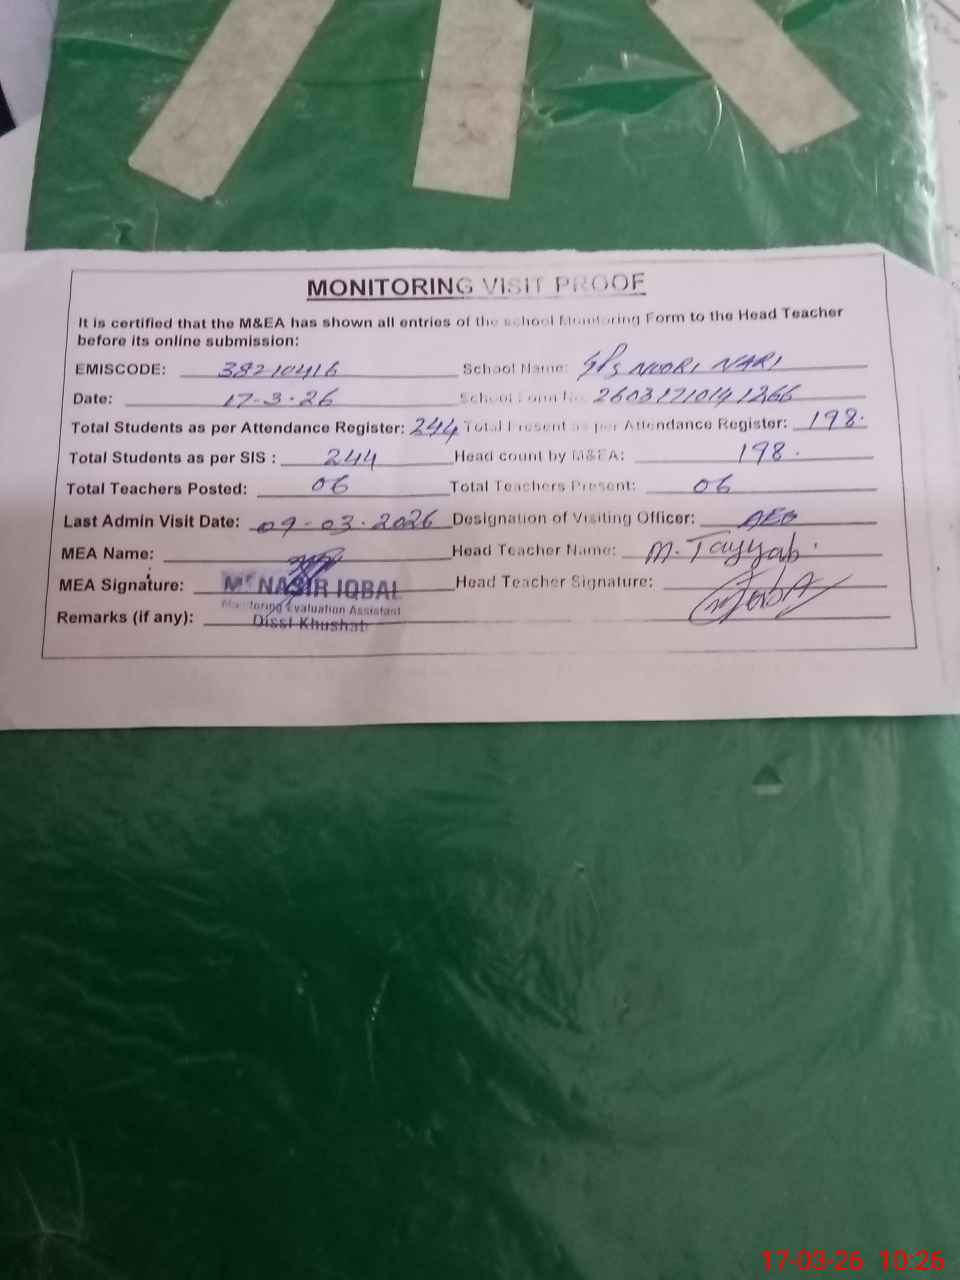 MONITORING VISIT PROOF
It is certified that the M&EA has shown all entries of the school Monitoring Form to the Head Teacher
before its online submission:
EMISCODE: 38210416 School Name: GPS NOORI NARI
Date: 17-3-26 School Form No. 26031710141266
Total Students as per Attendance Register: 244 Total Present as per Attendance Register: 198.
Total Students as per SIS : 244 Head count by M&EA: 198.
Total Teachers Posted: 06 Total Teachers Present: 06
Last Admin Visit Date: 09-03-2026 Designation of Visiting Officer: AEO
MEA Name: Head Teacher Name: M. Tayyab
MEA Signature: NASIR IQBAL Head Teacher Signature:
Monitoring Evaluation Assistant
Remarks (if any): Disst Khushab
17-03-26 10:26